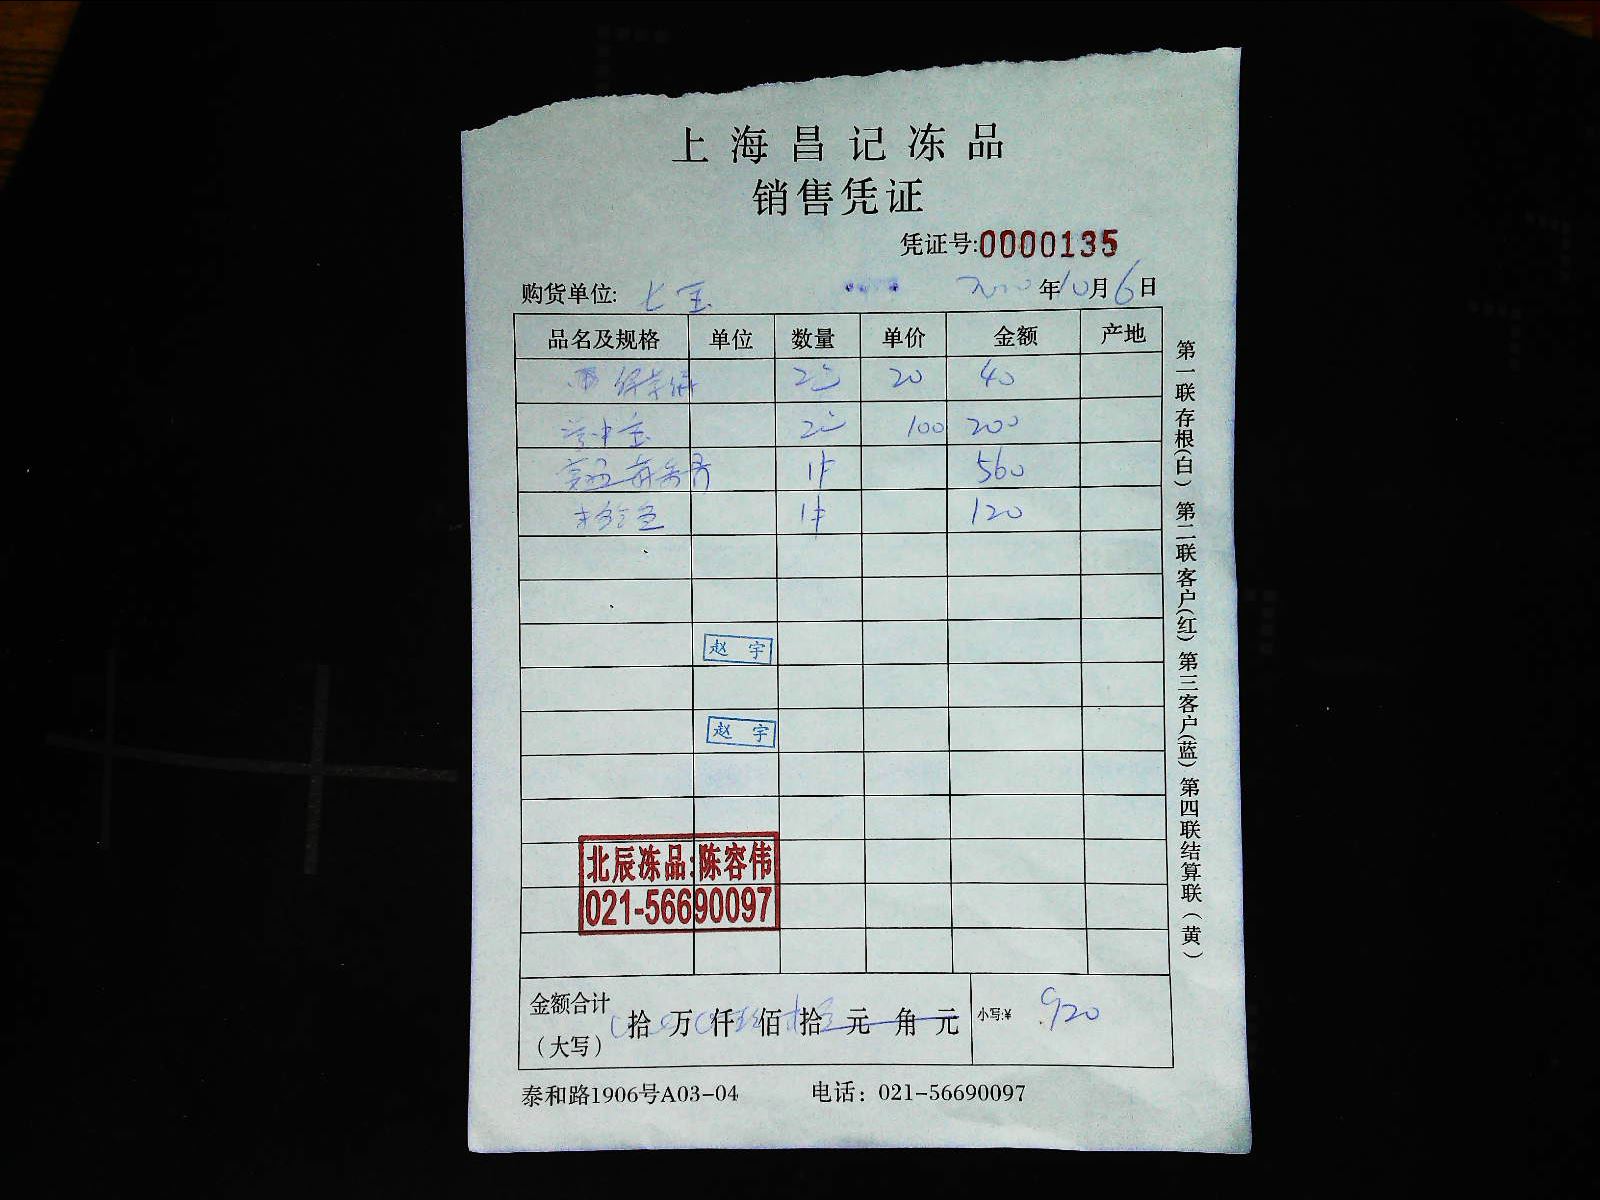 上海昌记冻品
销售凭证
凭证号:0000135
购货单位: 七宝
2020年10月6日
品名及规格 单位 数量 单价 金额 产地
20 40
100 200
1件 560
1件 120
赵宇
赵宇
北辰冻品:陈容伟
021-56690097
金额合计（大写） 拾 万 仟 佰 拾 元 角 元 小写:¥ 920
泰和路1906号A03-04 电话：021-56690097
第一联存根(白) 第二联客户(红) 第三客户(蓝) 第四联结算联(黄)